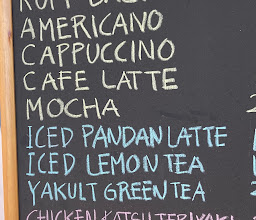 AMERICANO
CAPPUCCINO
CAFE LATTE
MOCHA
ICED PANDAN LATTE
ICED LEMON TEA
YAKULT GREEN TEA
CHICKEN KATSU TERIYAKI